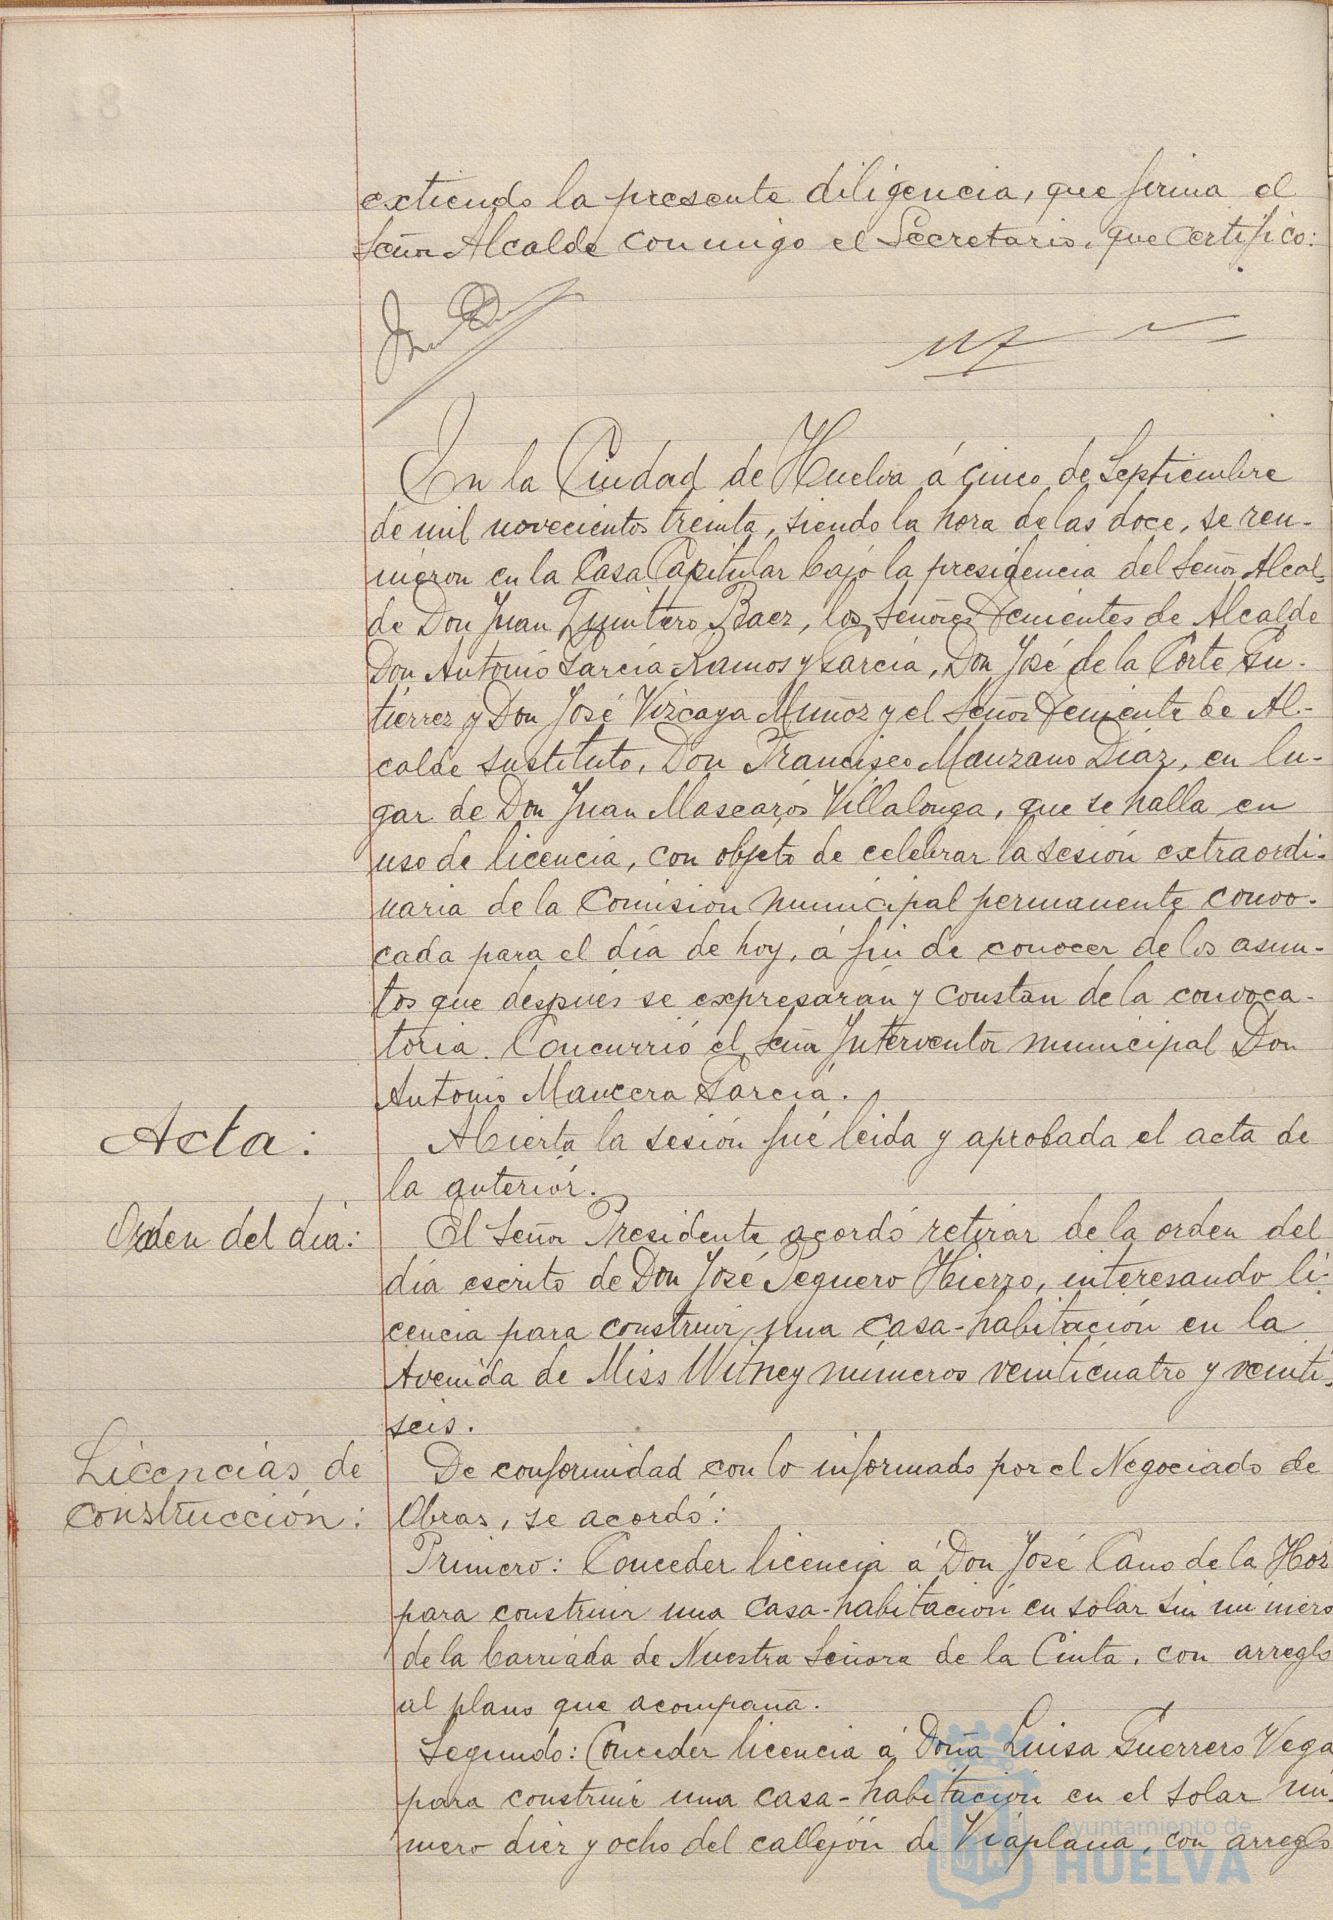 extiendo la presente diligencia, que firma el
Señor Alcalde conmigo el Secretario, que certifico:
En la Ciudad de Huelva á cinco de Septiembre
de mil novecientos treinta, siendo la hora de las doce, se reu-
nieron en la Casa Capitular bajo la presidencia del Señor Alcal-
de Don Juan Quintero Baez, los Señores Tenientes de Alcalde
Don Antonio Garcia-Ramos y Garcia, Don José de la Corte Gu-
tierrez y Don José Vizcaya Muñoz y el Señor Teniente de Al-
calde sustituto, Don Francisco Manzano Díaz, en lu-
gar de Don Juan Mascarós Villalonga, que se halla en
uso de licencia, con objeto de celebrar la sesión extraordi-
naria de la Comisión municipal permanente convo-
cada para el día de hoy, á fin de conocer de los asun-
tos que después se expresarán y constan de la convoca-
toria. Concurrió el Señor Interventor municipal Don
Antonio Mancera Garcia.
Acta:
Abierta la sesión fué leida y aprobada el acta de
la anterior.
Orden del día:
El Señor Presidente acordó retirar de la orden del
día escrito de Don José Peguero Hierro, interesando li-
cencia para construir una casa-habitación en la
Avenida de Miss Witney números veinticuatro y veinti-
seis.
Licencias de
construcción:
De conformidad con lo informado por el Negociado de
Obras, se acordó:
Primero: Conceder licencia á Don José Cano de la Hoz
para construir una casa-habitación en solar sin número
de la barriada de Nuestra Señora de la Cinta, con arreglo
al plano que acompaña.
Segundo: Conceder licencia á Doña Luisa Guerrero Vega
para construir una casa-habitación en el solar nú-
mero diez y ocho del callejón de Viaplana, con arreglo
Ayuntamiento de
HUELVA